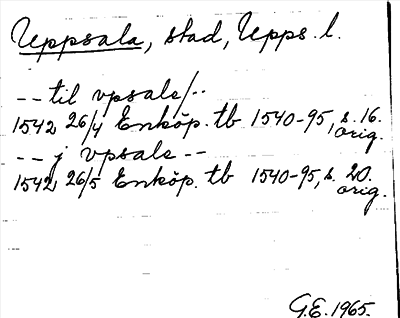 Uppsala, stad, Upps. l.
-- til vpsale/--
1542 26/4 Enköp. tb 1540-95, s. 16. orig.
-- j vpsale --
1542 26/5 Enköp. tb 1540-95, s. 20. orig.
G.E. 1965.